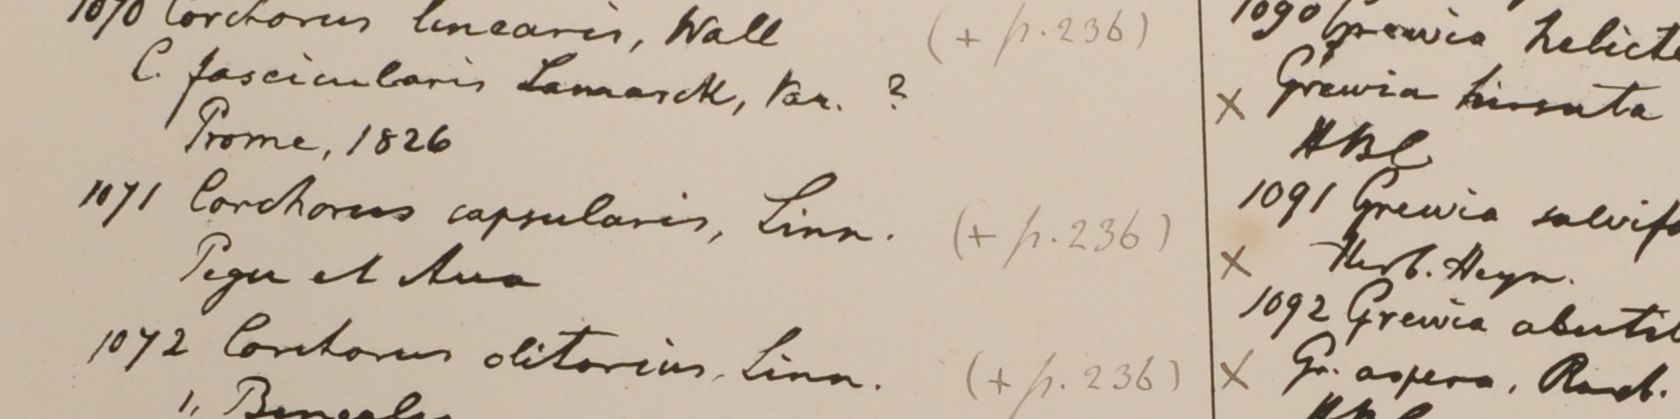 1070 Corchorus linearis, Wall (+ p. 236)
C. fascicularis Lamarck, Var. ?
Prome, 1826
1071 Corchorus capsularis, Linn. (+ p. 236)
Pegu et Ava
1072 Corchorus olitorius, Linn. (+ p. 236)
1, Bengales
1090 Grewia helicte
x Grewia hirsuta
HBC
1091 Grewia salvifo
x Herb. Heyn.
1092 Grewia abutil
x Gr. aspera, Roxb.
HBC